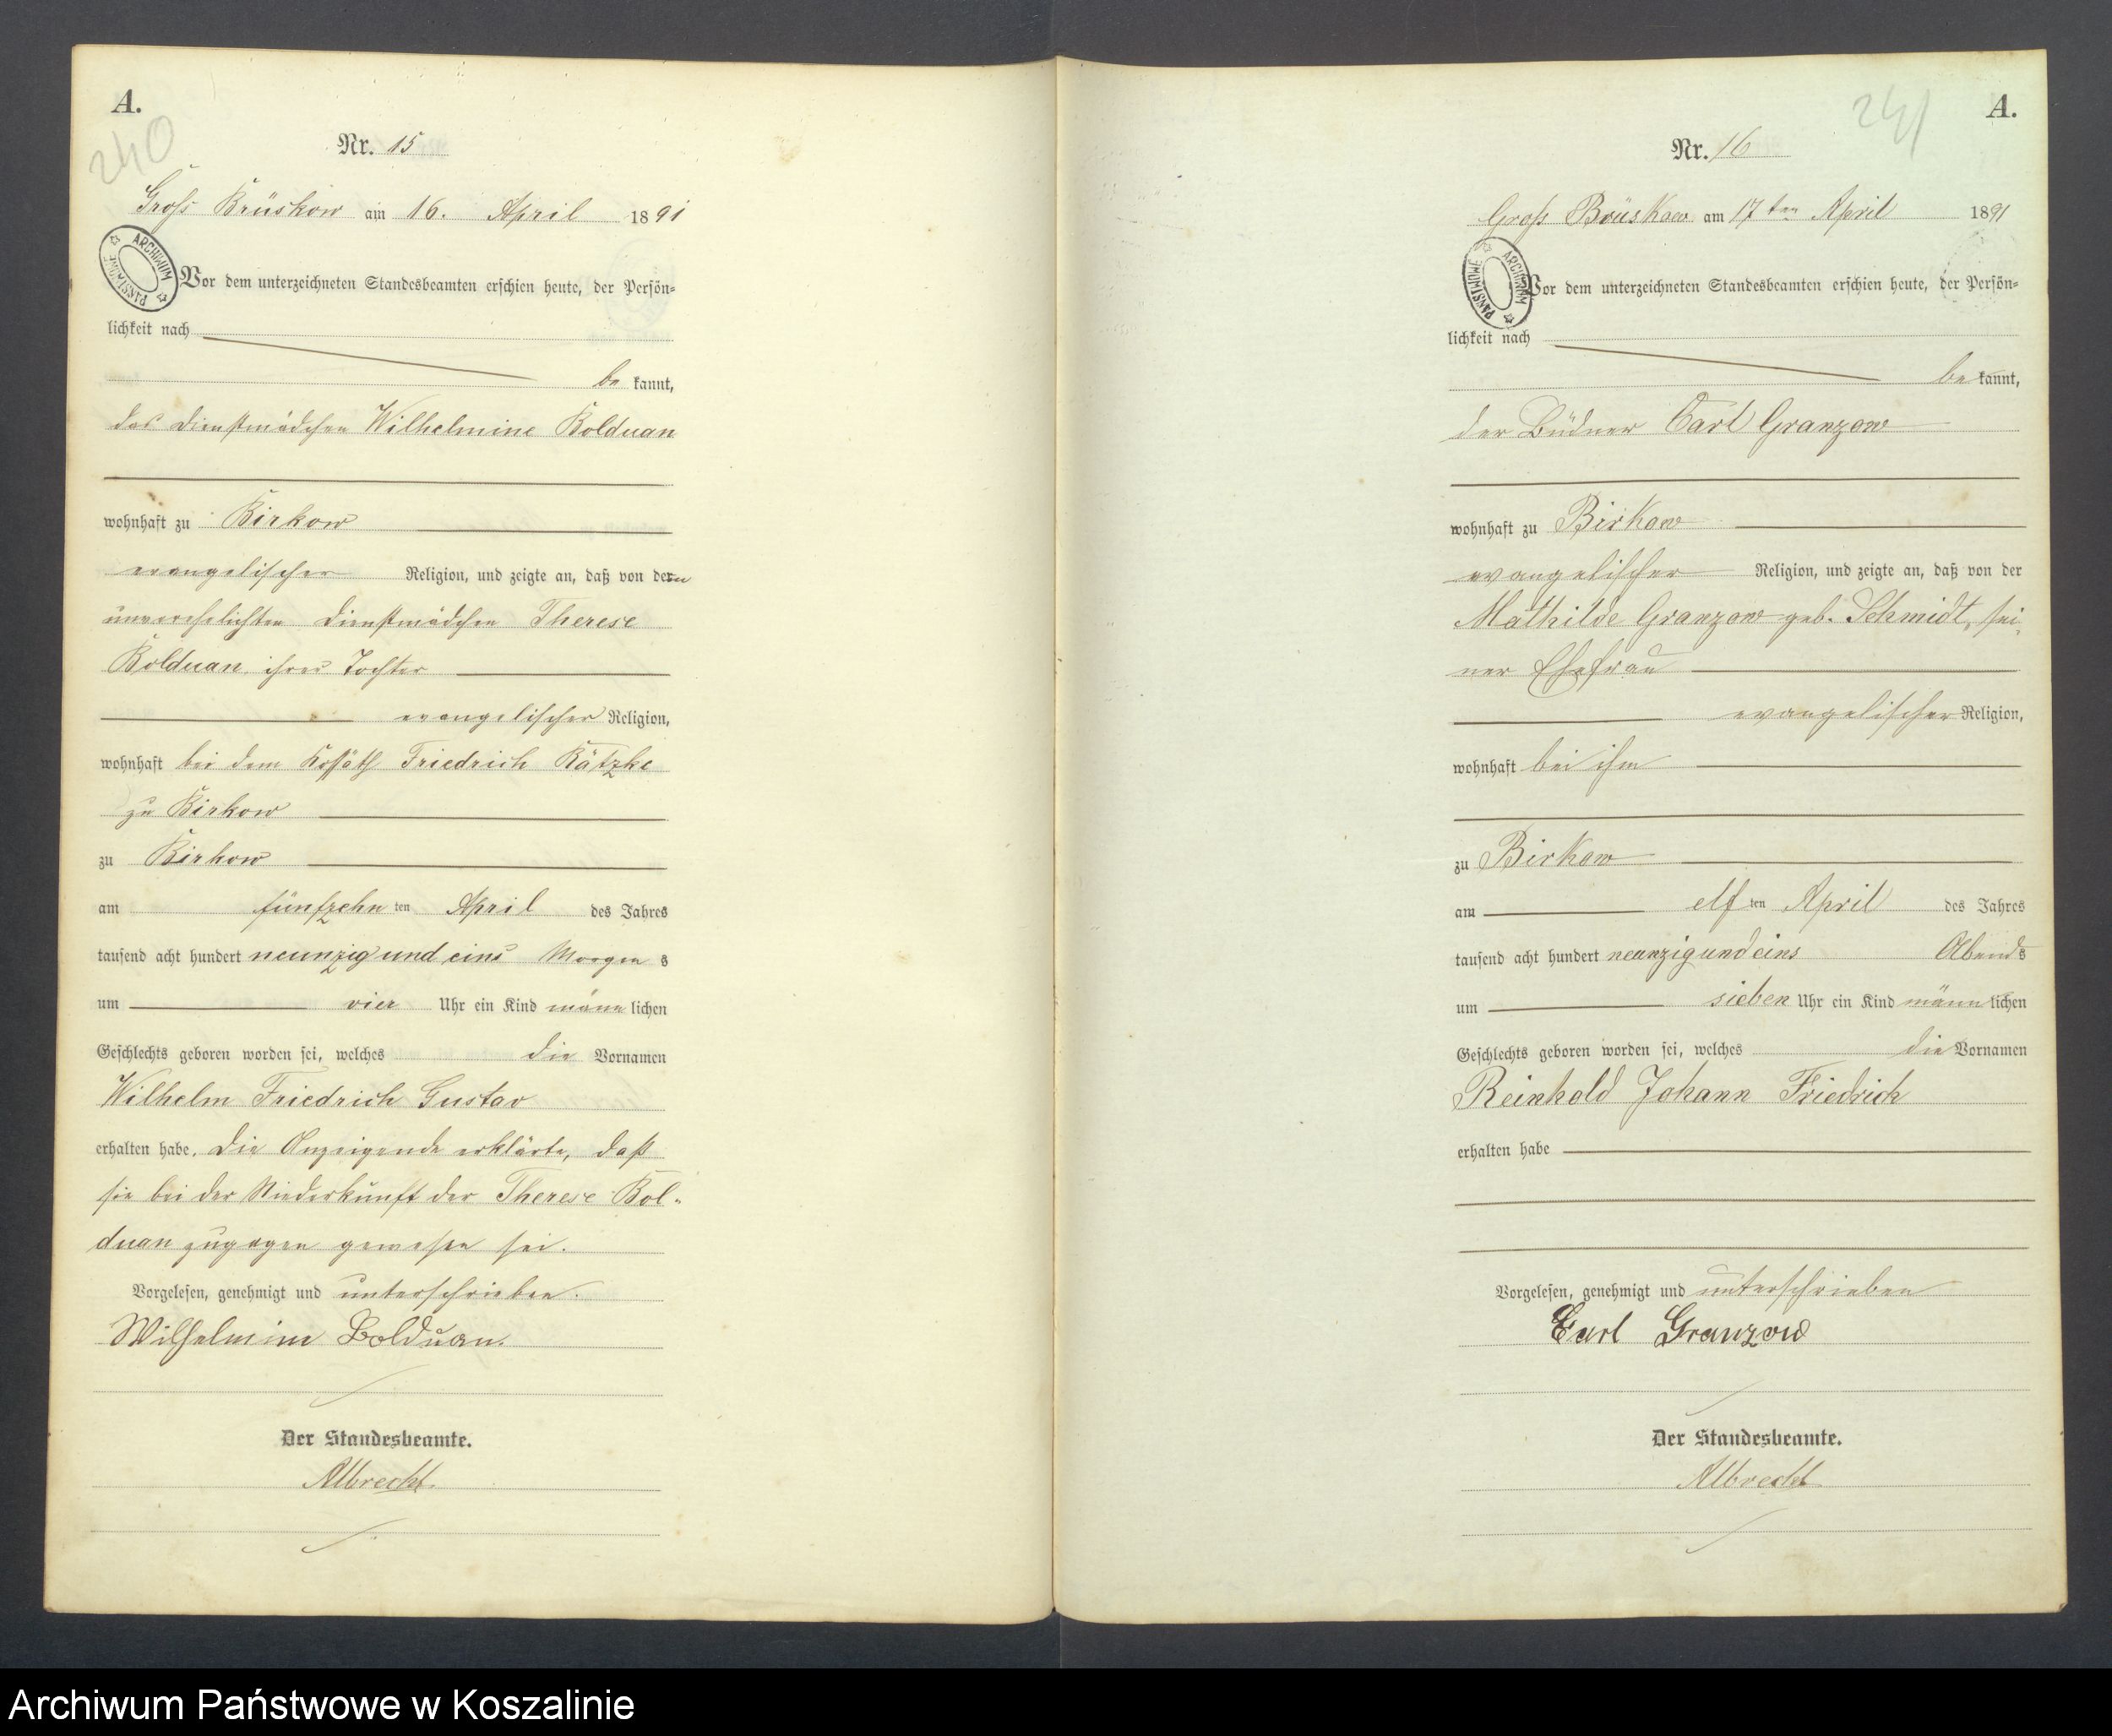 A.
240
Nr. 15
Groß Brüskow am 16. April 1891
ARCHIWUM PAŃSTWOWE
Vor dem unterzeichneten Standesbeamten erschien heute, der Persön=
lichkeit nach
be kannt,
das Dienstmädchen Wilhelmine Bolduan
wohnhaft zu Birkow
evangelischer Religion, und zeigte an, daß von dem
unverehelichten Dienstmädchen Therese
Bolduan, ihrer Tochter
evangelischer Religion,
wohnhaft bei dem Kossäth Friedrich Rätzke
zu Birkow
zu Birkow
am fünfzehn ten April des Jahres
tausend acht hundert neunzig und eins Morgen s
um vier Uhr ein Kind männ lichen
Geschlechts geboren worden sei, welches die Vornamen
Wilhelm Friedrich Gustav
erhalten habe. Die Anzeigende erklärte, daß
sie bei der Niederkunft der Therese Bol-
duan zugegen gewesen sei.
Vorgelesen, genehmigt und unterschrieben.
Wilhelmine Bolduan.
Der Standesbeamte.
Albrecht.
241
A.
Nr. 16
Groß Brüskow am 17 ten April 1891
ARCHIWUM PAŃSTWOWE
Vor dem unterzeichneten Standesbeamten erschien heute, der Persön=
lichkeit nach
be kannt,
der Büdner Carl Granzow
wohnhaft zu Birkow
evangelischer Religion, und zeigte an, daß von der
Mathilde Granzow geb. Schmidt, sei-
ner Ehefrau
evangelischer Religion,
wohnhaft bei ihm
zu Birkow
am elf ten April des Jahres
tausend acht hundert neunzig und eins Abend s
um sieben Uhr ein Kind männ lichen
Geschlechts geboren worden sei, welches die Vornamen
Reinhold Johann Friedrich
erhalten habe
Vorgelesen, genehmigt und unterschrieben
Carl Granzow
Der Standesbeamte.
Albrecht
Archiwum Państwowe w Koszalinie